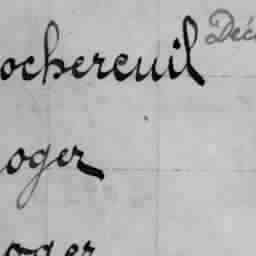 ochereuil Déc
oger
oger